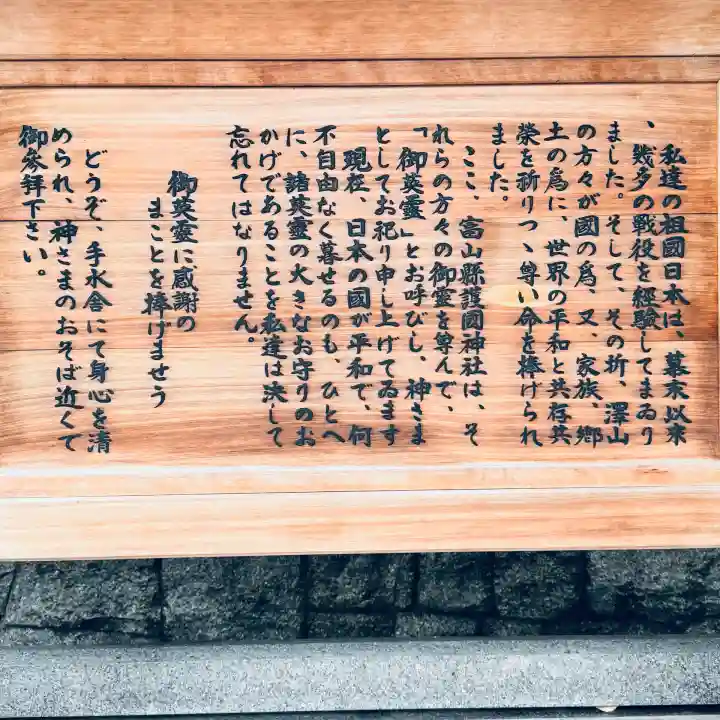 私達の祖國日本は、幕末以來
、幾多の戦役を經験してまゐり
ました。そして、その折、澤山
の方々が國の爲、又、家族、鄉
土の爲に、世界の平和と共存共
榮を祈りつゝ尊い命を捧げられ
ました。
ここ、富山縣護國神社は、そ
れらの方々の御霊を尊んで、
「御英霊」とお呼びし、神さま
としてお祀り申し上げてゐます
現在、日本の國が平和で、何
不自由なく暮せるのも、ひとへ
に、諸英霊の大きなお守りのお
かげであることを私達は決して
忘れてはなりません。
御英霊に感謝の
まことを捧げませう
どうぞ、手水舎にて身心を清
められ、神さまのおそば近くて
御參拜下さい。